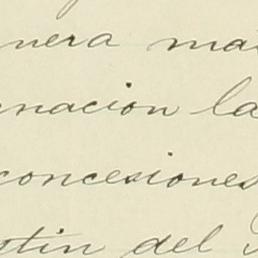 nera mai
nacion la
concesiones
stin del